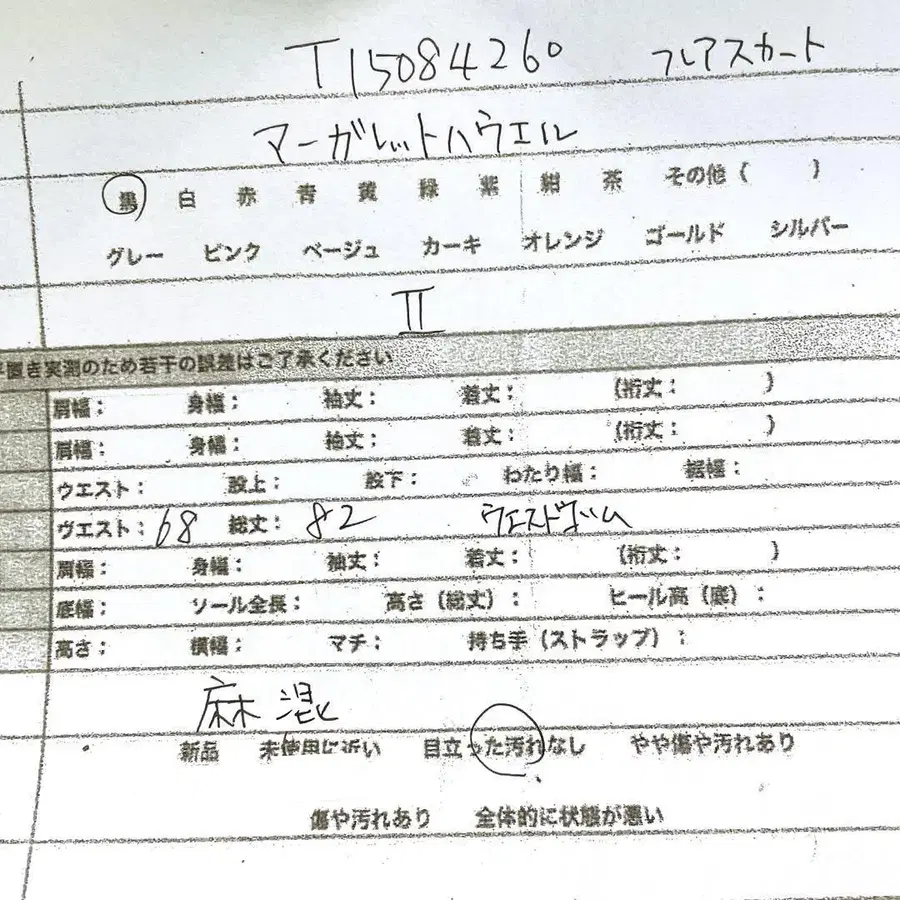 T15084260 フレアスカート
マーガレットハウエル
黒 白 赤 青 黄 緑 紫 紺 茶 その他 ( )
グレー ピンク ベージュ カーキ オレンジ ゴールド シルバー
II
置き実測のため若干の誤差はご了承ください
肩幅： 身幅： 袖丈： 着丈： (裄丈： )
肩幅： 身幅： 袖丈： 着丈： (裄丈： )
ウエスト： 股上： 股下： わたり幅： 裾幅：
ウエスト：68 総丈：82 ウエストゴム
肩幅： 身幅： 袖丈： 着丈： (裄丈： )
底幅： ソール全長： 高さ（総丈）： ヒール高（底）：
高さ： 横幅： マチ： 持ち手（ストラップ）：
麻混
新品 未使用に近い 目立った汚れなし やや傷や汚れあり
傷や汚れあり 全体的に状態が悪い